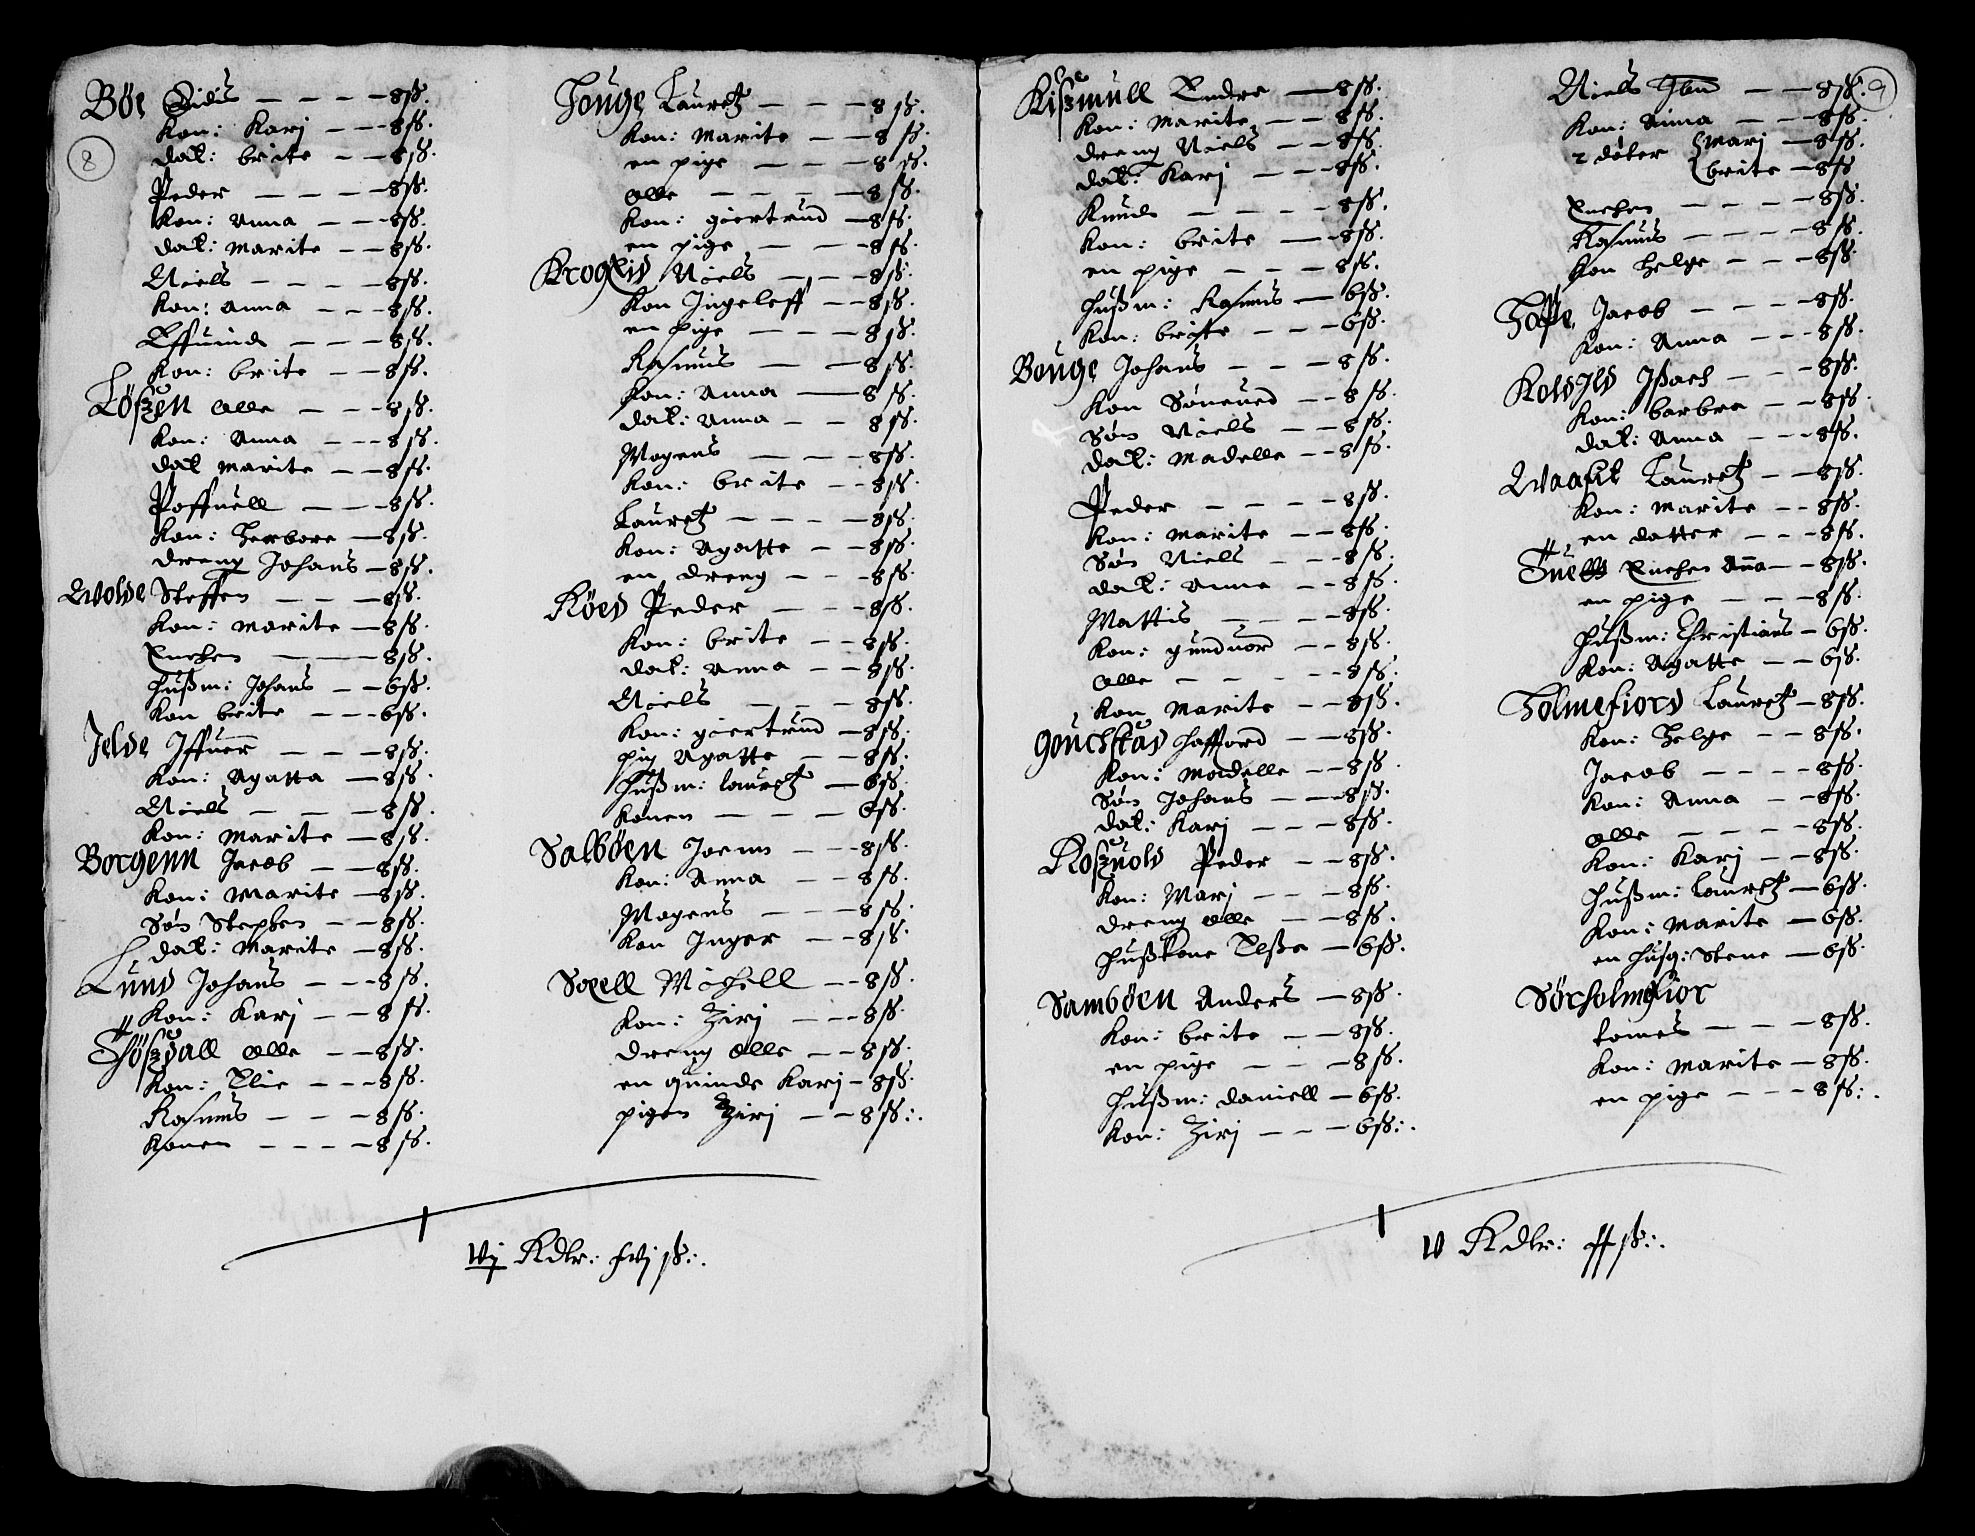 8
Bøe Eidis — — — — 8 ſß.
Kon: Karj — — — 8 ſß.
dat: brite — — 8 ſß.
Peder — — — — 8 ſß.
Kon: Anna — — — 8 ſß.
dat: Marite — — 8 ſß.
Niels — — — — 8 ſß.
Kon: Anna — — — 8 ſß.
Effuind — — — 8 ſß.
Kon: brite — — — 8 ſß.
Lößzen Olle — — — 8 ſß.
Kon: Anna — — — 8 ſß.
dat Marite — — 8 ſß.
Poffuell — — — 8 ſß.
Kon: Herbore — 8 ſß.
dreng Johans — 8 ſß.
Wolde Steffen — — — 8 ſß.
Kon: Marite — 8 ſß.
Enchen — — — 8 ſß.
Hußm: Johans — — 6 ſß.
Kon brite — — — 6 ſß.
Jelde Iffuer — — — 8 ſß.
Kon: Agatta — 8 ſß.
Niels — — — — 8 ſß.
Kon: Marite — 8 ſß.
Borgenn Jacob — — 8 ſß.
Kon: Marite — 8 ſß.
Søn Stephen — — 8 ſß.
dat: Marite — 8 ſß.
Lund Johans — — — 8 ſß.
Kon: Karj — — — 8 ſß.
Thößzdall Olle — — 8 ſß.
Kon: Elie — — — 8 ſß.
Rasmus — — — 8 ſß.
Konen — — — — 8 ſß.
Touge Lauretz — — — 8 ſß.
Kon: Marite — — 8 ſß.
en pige — — — 8 ſß.
Olle — — — — 8 ſß.
Kon: giertrud — 8 ſß.
en pige — — — 8 ſß.
Krogeid Niels — — — 8 ſß.
Kon Ingeleff — — 8 ſß.
en pige — — — 8 ſß.
Rasmus — — 8 ſß.
Kon: Anna — 8 ſß.
dat: Anna — — 8 ſß.
Mogens — — — 8 ſß.
Kon: brite — — 8 ſß.
Lauretz — — — — 8 ſß.
Kon: Agatte — — 8 ſß.
en dreng — — — 8 ſß.
Röed Peder — — — 8 ſß.
Kon: brite — — 8 ſß.
dat: Anna — — 8 ſß.
Niels — — — 8 ſß.
Kon: giertrud — 8 ſß.
pig Agatte — — 8 ſß.
Hußm: lauretz — 6 ſß.
Konen — — — 6 ſß.
Salbøen Joenn — — — 8 ſß.
Kon: Anna — — 8 ſß.
Mogens — — — 8 ſß.
Kon Inger — — 8 ſß.
Soxell Michell — — 8 ſß.
Kon: Zirj — — — 8 ſß.
dreng Olle — — 8 ſß.
en quinde Karj — 8 ſß.
pigen Zirj — — 8 ſß:.
Vj Rdlr: xvj ſß:.
9
Kißzmull Endre — 8 ſß.
Kon: Marite — — 8 ſß.
dreng Niels — — 8 ſß.
dat: Karj — — — 8 ſß.
Knud — — — — 8 ſß.
Kon: brite — — 8 ſß.
en pige — — — 8 ſß.
Hußm: Rasmus — 6 ſß.
Kon: brite — — — 6 ſß.
Bouge Johans — — — 8 ſß.
Kon Söneued — — 8 ſß.
Søn Niels — — 8 ſß.
dat: Madelle — — 8 ſß.
Peder — — — — 8 ſß.
Kon: Marite — — 8 ſß.
Søn Niels — — — 8 ſß.
dat: Anne — — 8 ſß.
Mattis — — — — 8 ſß.
Kon: gundnor — — 8 ſß.
Olle — — — — — 8 ſß.
Kon Marite — — 8 ſß.
Hafford — — 8 ſß.
Kon: Madelle — — 8 ſß.
Søn Johans — — 8 ſß.
dat: Karj — — — 8 ſß.
Roßzuold Peder — — 8 ſß.
Kon: Marj — — — 8 ſß.
dreng Olle — — 8 ſß.
Hußkone Elße — 6 ſß.
Sambøen Anders — 8 ſß.
Kon: brite — — 8 ſß.
en pige — — — 8 ſß.
Hußm: daniell — 6 ſß.
Kon: Zirj — — — 6 ſß:.
Niels Ibid — — 8 ſß.
Kon: Anna — — — 8 ſß.
2 döter Marj — 8 ſß.
brite — 8 ſß
Enchen — — — — 8 ſß.
Rasmus — — — — 8 ſß.
Kon Helge — — — 8 ſß.
Jacob — — — — 8 ſß.
Kon: Anna — — — 8 ſß.
Ißach — — — 8 ſß.
Kon: barbra — — 8 ſß.
dat: Anna — — — 8 ſß.
Lauretz — — 8 ſß.
Kon: Marite — — 8 ſß.
en datter — — — 8 ſß.
Enchen Anna — — 8 ſß.
en pige — — — 8 ſß.
Hußm: Christians — 6 ſß.
Kon: Agatte — — 6 ſß.
Tolmefiord Lauretz — 8 ſß.
Kon: Helge — — 8 ſß.
Jacob — — — — 8 ſß.
Kon: Anna — — 8 ſß.
Olle — — — — 8 ſß.
Kon: Karj — — 8 ſß.
Hußm: Lauretz — 6 ſß.
Kon: Marite — 6 ſß.
en Husq: Stene — 6 ſß.
Sørholmefior
tomes — — — 8 ſß.
Kon: Marite — 8 ſß.
en pige — — — 8 ſß:.
V Rdlr: ſß:.